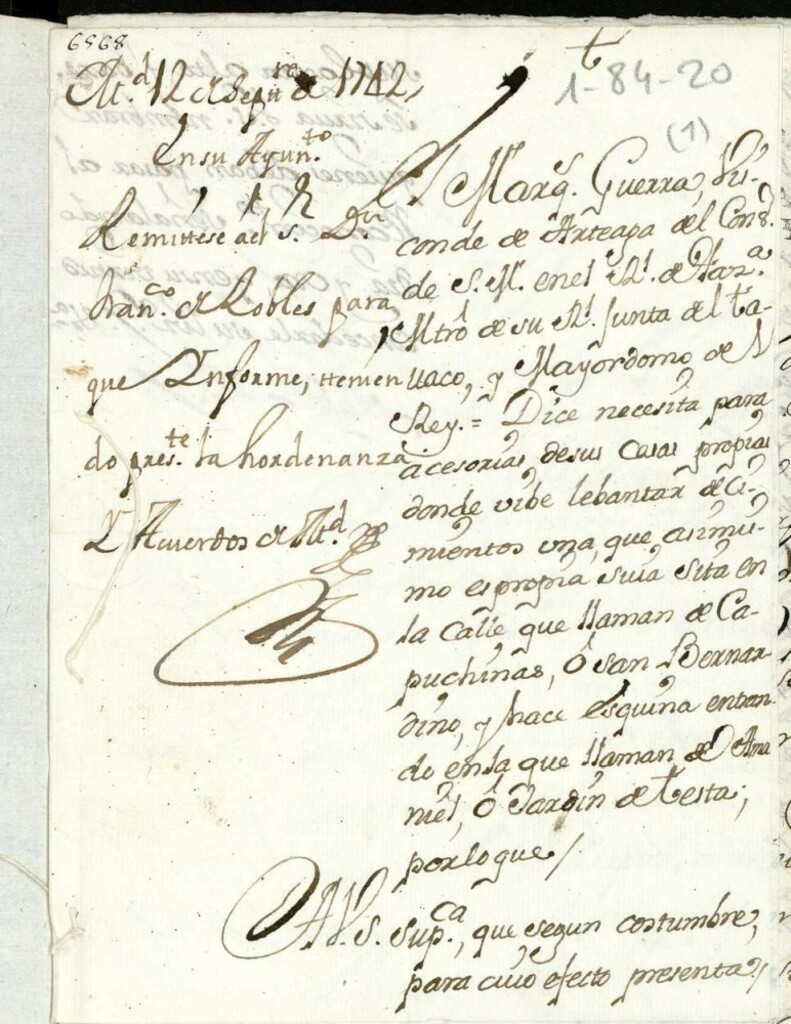 6868
†
1-84-20
(1)
Md. 12 de Sepre. de 1742,
En su Ayunto.
Remitese al s. Dn.
Franco. de Robles para
que Informe, tenien
do preste. la hordenanza
Y Acuerdos de Md.
El Marqs. Guerra, Viz-
conde de Arteaga del Cons.
de S. M. en el Rl. de Haza.
Mtro. de su Rl. Junta del ta-
vaco, y Mayordomo de
Rey. = Dice necesita para
acesorias de sus Casas propias
donde vibe lebantar de Ci-
mientos una, que asimis-
mo es propria suia sita en
la Calle que llaman de Ca-
puchinas, ô san Bernar-
dino, y hace esquina entran
do en la que llaman de Ama
niel, ô Jardin de testa,
por lo que /
A V. S. Supca., que segun costumbre,
para cuio efecto presenta